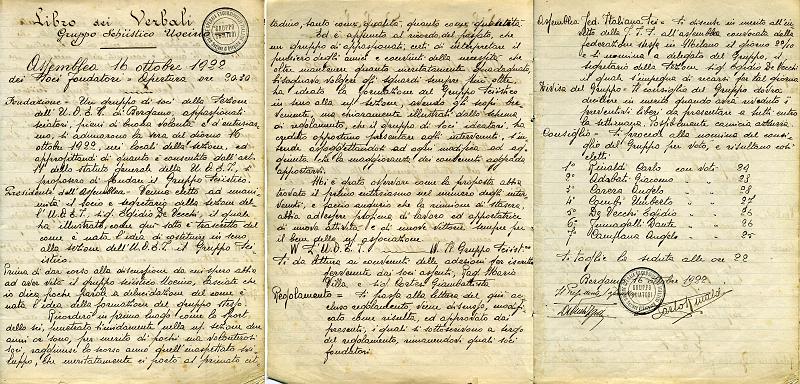 Libro dei Verbali
Gruppo Schiistico Uoeino
Assemblea 16 ottobre 1922
dei Soci fondatori = Apertura ore 20.30
Fondazione = Un gruppo di soci della Sezione
dell'U.O.E.I. di Bergamo, appassionati
sciatori, pieni di buona volontà e di entusia
smo, si adunarono la sera del giorno 16
ottobre 1922, nei locali della sezione, ed
approfittando di quanto è consentito dall'art.
dello statuto generale della U.O.E.I. si
proposero di fondare il Gruppo Sciistico.
Presidente dell'Assemblea = Venne eletto ad unani
mità, il socio e segretario della sezione del
l'U.O.E.I. sig. Egidio De Vecchi, il quale
ha illustrato, come qui sotto è trascritto del
come è nata l'idea di costituire in seno
alla sezione dell'U.O.E.I. il Gruppo Sci
istico.
Prima di dar corso alla discussione da cui spero abbia
ad aver vita il gruppo sciistico Uoeino, lasciate che
io dica poche parole a delucidazione del come è
nata l'idea della formazione del gruppo stesso.
Ricorderò in primo luogo come lo sport
dello sci, penetrato timidamente nella ns. sezione due
anni or sono, per merito di pochi ma volonterosi
soci, raggiunse lo scorso anno quell'inaspettato svi
luppo, che meritatamente ci portò al primato cit
tadino, tanto come qualità, quanto come quantità.
Ed è appunto al ricordo del passato, che
un gruppo di appassionati, certi di interpretare il
pensiero degli amici e convinti della necessità che
oltre mantenere quanto meritatamente guadagnato,
bisognava volgere gli sguardi sempre più oltre,
ha ideato la formazione del Gruppo Sciistico
in seno alla ns. sezione, avendo gli scopi bre
vemente, ma chiaramente illustrati dallo schema
di regolamento, che il gruppo di soci ideatori, ha
creduto opportuno presentare agli intervenuti, s'in
tende assoggettandosi ad ogni modifica ed ag
giunta che la maggioranza dei convenuti aggrada
apportarvi.
Mi è grato osservare come la proposta abbia
trovato il pieno entusiasmo nel numero degli inter
venuti, e faccio augurio che la riunione di stasera,
abbia ad essere proficua di lavoro ed apportatrice
di nuova attività, e di nuove vittorie sempre per
il bene della ns. associazione.
W l'U.O.E.I. W il Gruppo Sciistico
Si dà lettura ai convenuti delle adesioni per iscritto
pervenute dai soci assenti, Rag. Mario
Villa e sig. Cortesi Giambattista
Regolamento = Si passa alla lettura del qui ac
cluso regolamento, viene discusso, modifi
cato come risulta, ed approvato dai
presenti, i quali si sottoscrivono a tergo
del regolamento, rimanendovi quali soci
fondatori.
Assemblea Fed. Italiana Sci = Si discute in merito all'in
vito della F.I.S. all'assemblea convocata dalla
federazione stessa in Milano il giorno 22/10
e si nomina a delegato del Gruppo, il
segretario della sezione sig. Egidio De Vecchi
il quale s'impegna di recarsi per tal giorno.
Divisa del Gruppo = Il consiglio del Gruppo dovrà
deliberare in merito quando avrà ricevuto i
preventivi liberi da presentare a tutti entro
la settimana possibilmente camica azzurra.
Consiglio = Si procede alla nomina del consi
glio del Gruppo per voto, e risultano così
eletti
1º Rinaldi Carlo con voti 29
2º Sabbati Giacomo " " 28
3º Carera Angelo " " 28
4º Cambi Umberto " " 27
5º De Vecchi Egidio " " 26
6º Fumagalli Dante " " 26
7º Camplana Angelo " " 25
Si toglie la seduta alle ore 22
Bergamo, 16 ottobre 1922
Il Presidente
Carlo Rinaldi